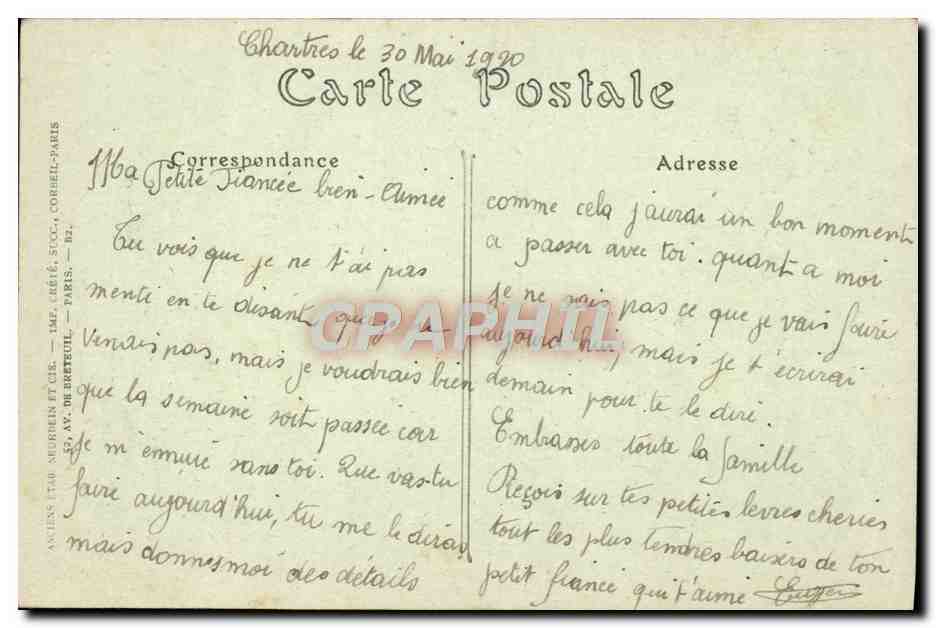 Chartres le 30 Mai 1920
Carte Postale
Correspondance
Ma Petite Fiancée bien-Aimée
Tu vois que je ne t'ai pas
menti en te disant que je
venais pas, mais je voudrais bien
que la semaine soit passée car
je m'ennuie sans toi. Que vas-tu
faire aujourd'hui, tu me le diras
mais donnes moi des détails
Adresse
comme cela j'aurai un bon moment
a passer avec toi. quant a moi
je ne sais pas ce que je vais faire
aujourd'hui, mais je t'écrirai
demain pour te le dire.
Embrasses toute la famille
Reçois sur tes petites levres cheries
tout les plus tendres baisers de ton
petit fiancé qui t'aime
ANCIENS ÉTAB. NEURDEIN ET CIE. — IMP. CRÉTÉ, SUCC., CORBEIL-PARIS
52, AV. DE BRETEUIL. — PARIS. — B2.
GRAPHIL